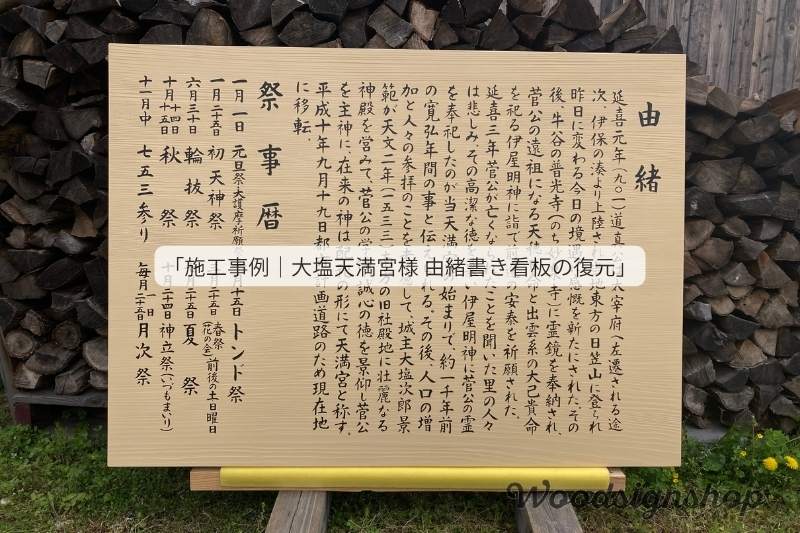 由緒
延喜元年(九〇一)道真公、大宰府へ左遷される途
次、伊保の湊より上陸され、地東方の日笠山に登られ
昨日に変わる今日の境遇 感慨を新たにされた。その
後、牛谷の普光寺(のち 寺)に霊鏡を奉納され、
菅公の遠祖になる天 命と出雲系の大己貴命
を祀る伊屋明神に詣で の安泰を祈願された。
延喜三年菅公が亡くな たことを聞いた里の人々
は悲しみ、その高潔な徳を い伊屋明神に菅公の霊
を奉祀したのが当天満 始まりて、約一千年前
の寛弘年間の事と伝え れる。その後、人口の増
加と人々の参拝のことを して、城主大塩次郎景
範が天文二年(一五三三) の旧社殿地に壮麗なる
神殿を営みて、菅公の学 誠心の徳を景仰し菅公
を主神に、在来の神は配 の形にて天満宮と称す。
平成十年九月十九日都 計画道路のため現在地
に移転。
祭事暦
一月一日 元旦祭大護摩祈願祭
十五日 トンド祭
一月二十五日 初天神祭
二十五日 春祭(花の会)前後の土日曜日
六月三十日 輪抜祭
二十五日 夏祭
十月十四日十五日 秋祭
二十四日 神立祭(いづもまいり)
十一月中 七五三参り
毎月一日二十五日 月次祭
「施工事例｜大塩天満宮様 由緒書き看板の復元」
Woodsignshop